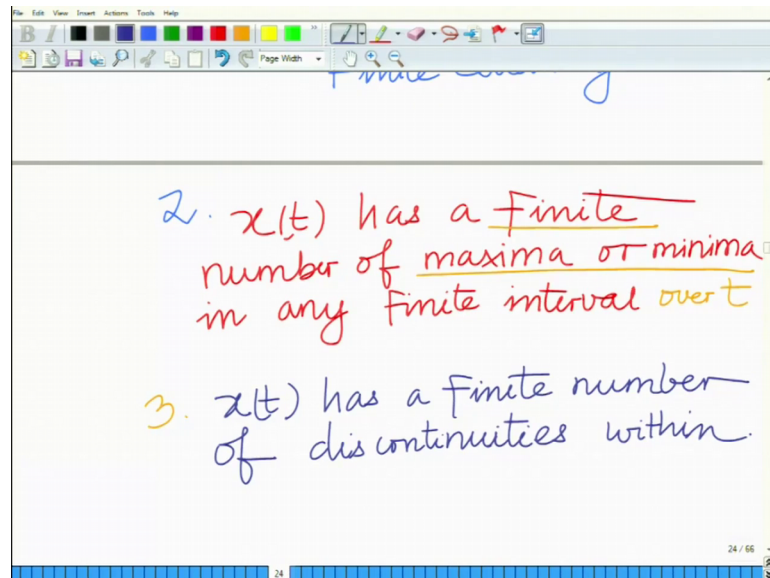 File Edit View Insert Actions Tools Help
B I
Page Width
Finite
2. x(t) has a Finite
number of maxima or minima
in any Finite interval over t
3. x(t) has a Finite number
of discontinuities within
24 / 66
24